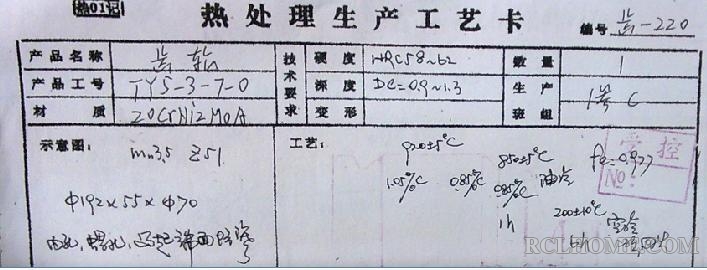 热01记
热处理生产工艺卡
编号 齿-220
产品名称 齿轧 技术要求 硬度 HRC58~62 数量 1
产品工号 TY5-3-7-0 深度 DC=0.9~1.3 生产班组 1号C
材质 20CrNi2MoA 变形
示意图: 工艺:
mn3.5 Z51
Φ192×55×Φ70
920±5℃ 850±5℃
1.05%C 0.85%C 0.85%C 油冷
1h
200±10℃
6h 空冷
受控
№:
RCLHOME.COM